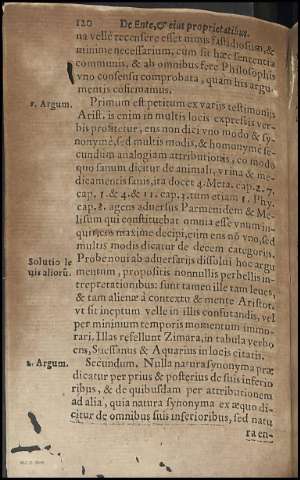 120 De Ente, & eius proprietatibus.
na vellé recensere esset nimis fastidiosum, &
minime necessarium, cum sit hæc sententia
communis, & ab omnibus fere Philosophis
vno consensu comprobata, quam his argu
mentis colligamus.
1. Argum. Primum est petitum ex varijs testimonijs
Arist. is enim in multis locis expressis ver-
bis profitetur, ens non dici vno modo & sy-
nonyme, sed multis modis, & homonyme se-
cundum analogiam attributionis, eo modo
quo sanum dicitur de animali, vrina & me-
dicamentis sanis, ita docet 4. Meta. cap. 2. 7.
cap. 1 & 4. & 11. cap. 3. tum etiam 1. Phy.
cap. 2. agens aduersus Parmenidem & Me-
lissum qui constituebat omnia esse vnum in-
quit, eos maxime decipi, cum ens nõ vno, sed
multis modis dicatur de decem categorijs.
Solutio le
uis aliorũ.
Probe noui ab aduersarijs dissolui hoc argu
mentum, propositis nonnullis perbellis in-
terpretationibus: sunt tamen ille tam leues,
& tam alienæ à contextu & mente Aristot.
vt sit ineptum velle in illis confutandis, vel
per minimum temporis momentum immo-
rari. Illas refellunt Zimara, in tabula verbo
ens, Suessanus & Aquarius in locis citatis.
2. Argum. Secundum. Nulla natura synonyma præ
dicatur per prius & posterius de suis inferio
ribus, & de quibusdam per attributionem
ad alia, quia natura synonyma ex æquo di-
citur de omnibus suis inferioribus, sed natu
ra en-